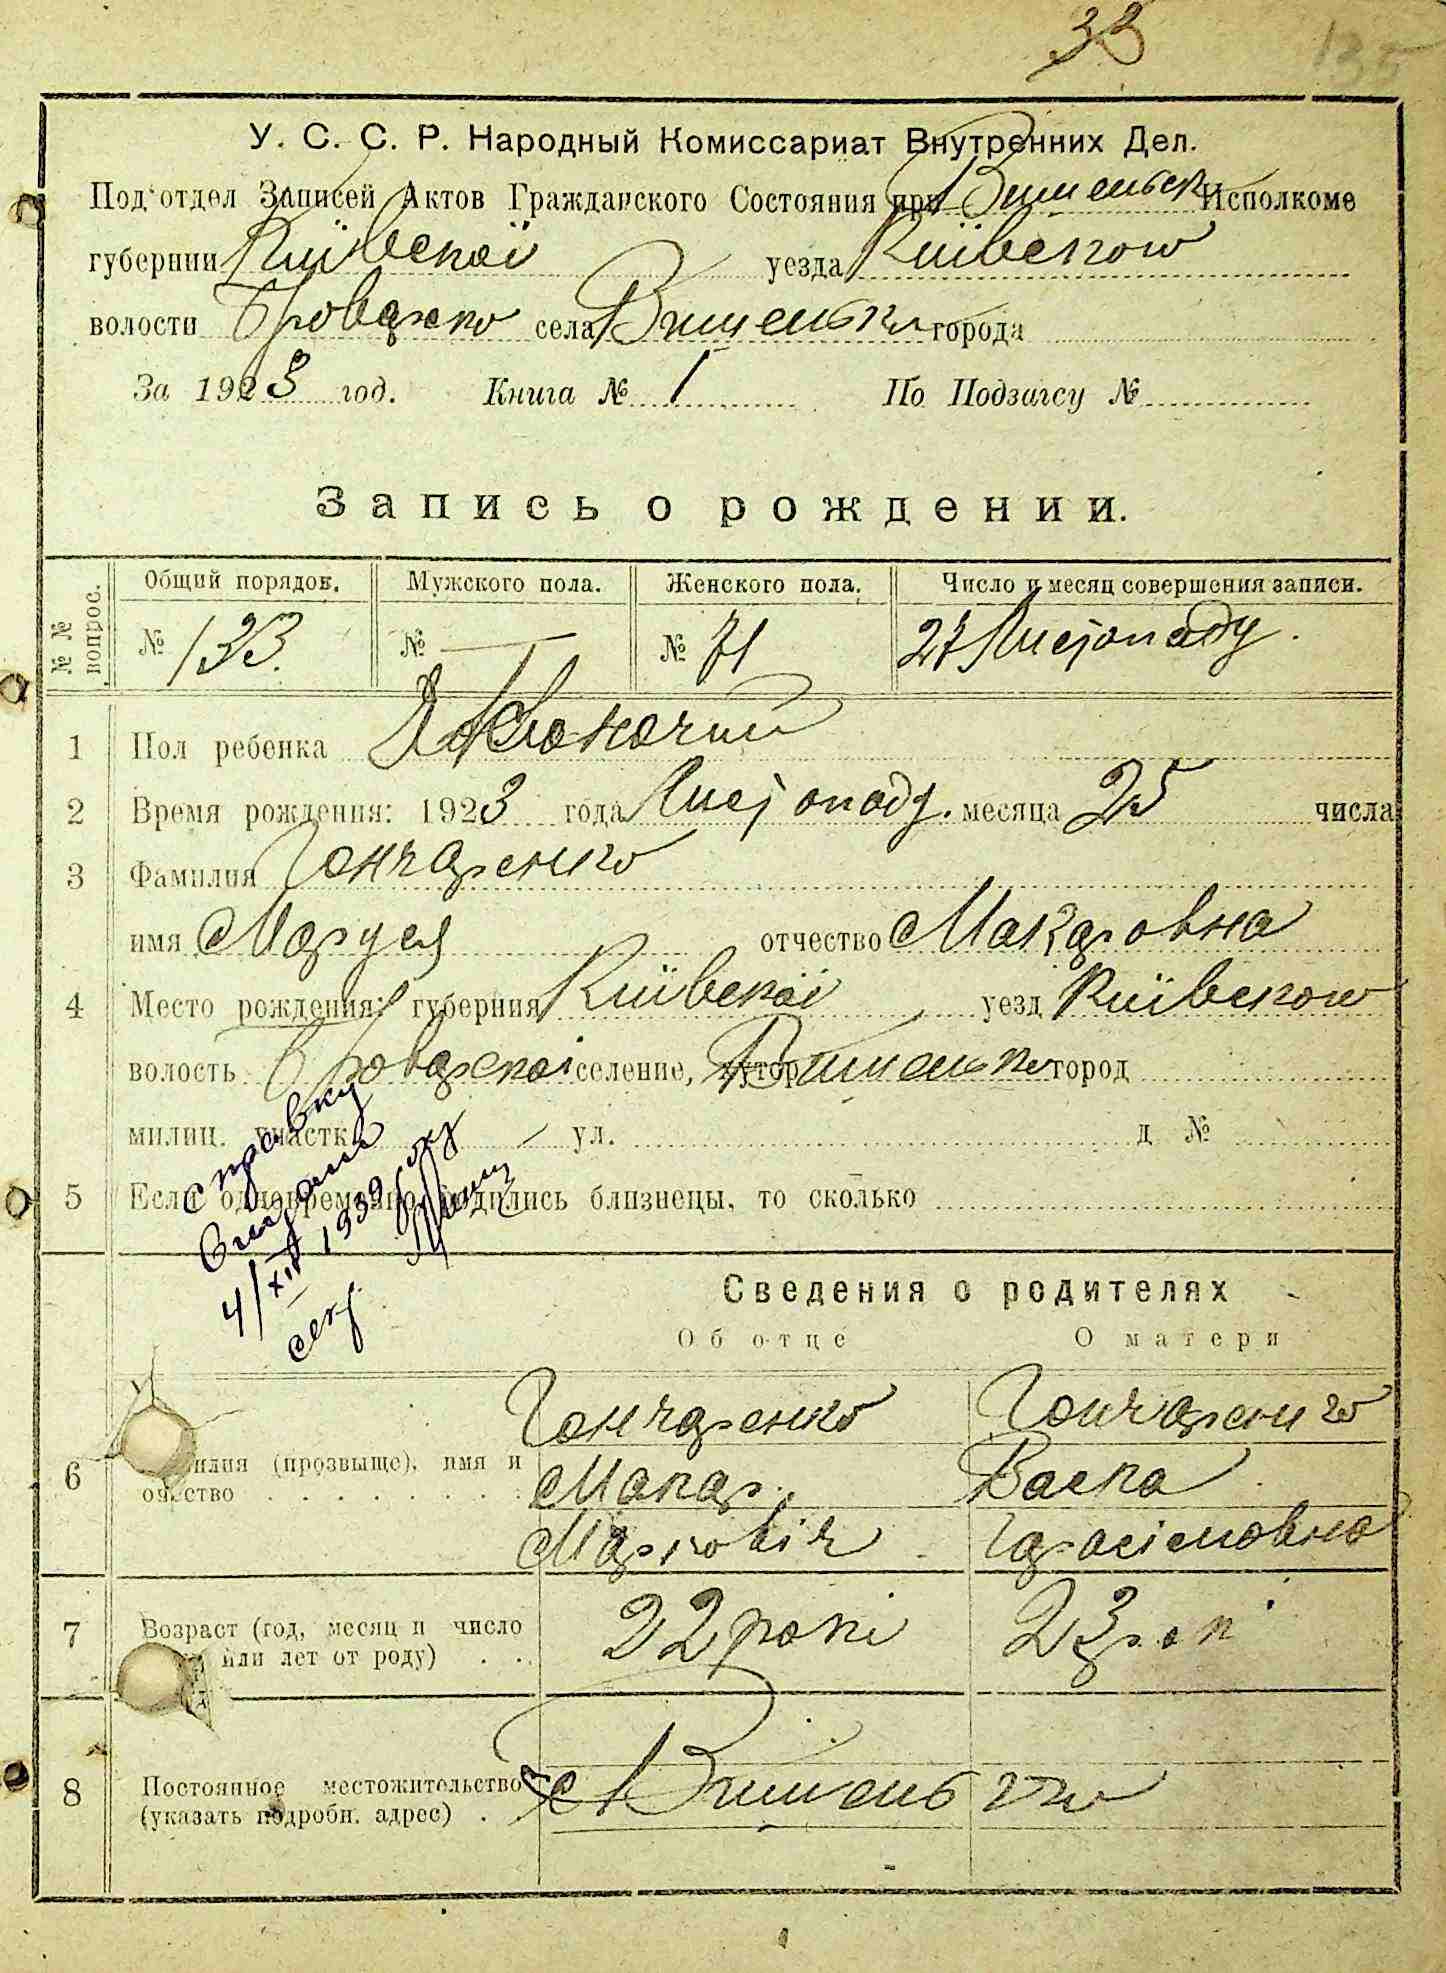 33
135
У. С. С. Р. Народный Комиссариат Внутренних Дел.
Под'отдел Записей Актов Гражданского Состояния при Вишеньск Исполкоме
губернии Київскої уезда Київсково
волости Броварско села Вишеньки города
За 1923 год. Книга № 1 По Подзагсу №
Запись о рождении.
№ № вопрос. Общий порядов. Мужского пола. Женского пола. Число и месяц совершения записи.
№ 133. № — № 71 27 Листопаду.
1 Пол ребенка Жіночий
2 Время рождения: 1923 года Листопаду. месяца 25 числа
3 Фамилия Гончаренко
имя Маруся отчество Макаровна
4 Место рождения: губерния Київскої уезд Київсково
волость Броварскоі селение, хутор Вишеньки город
милиц. участк ул. д №
5 Если одновременно родились близнецы, то сколько
справку
видано
4/XII 1939 року
секр
Сведения о родителях
Об отце О матери
6 Фамилия (прозвыще), имя и отчество
Гончаренко Гончаренко
Макар. Васка
Маркович Гарасімовна
7 Возраст (год, месяц и число или лет от роду) 22 рокі 23 рок
8 Постоянное местожительство (указать подробн. адрес) с Вишеньки